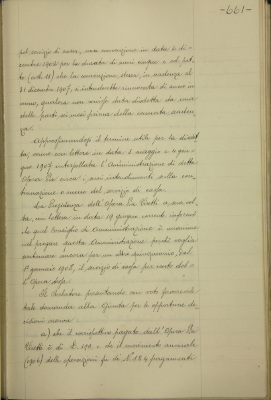 -661-
pel servizio di cassa, una convenzione in data 2 di-
cembre 1902 per la durata di anni cinque e col pat-
to (art. 11) che la convenzione stessa, in scadenza al
31 dicembre 1907, s'intendesse rinnovata di anno in
anno, qualora non venisse data disdetta da una
delle parti sei mesi prima della corrente scaden-
za.
Approssimandosi il termine utile per la disdet-
ta, come con lettera in data 2 maggio e 4 giu-
gno 1907 interpellata l'Amministrazione di detta
Opera Pia circa i suoi intendimenti sulla con-
tinuazione o meno del servizio di cassa.
La Presidenza dell'Opera Pia a sua vol-
ta, con lettera in data 19 giugno corrente informò
che quel Consiglio di Amministrazione è unanime
nel pregare questa Amministrazione perchè voglia
continuare ancora per un altro quinquennio, dal
1° gennaio 1908, il servizio di cassa per conto del-
l'Opera stessa.
Il Relatore presentando con voto favorevole
tale domanda alla Giunta per le opportune de-
cisioni osserva:
a) che il compenso pagato dall'Opera Pia
è di L. e che il movimento annuale
(1906) delle operazioni fu di N. 124 pagamenti